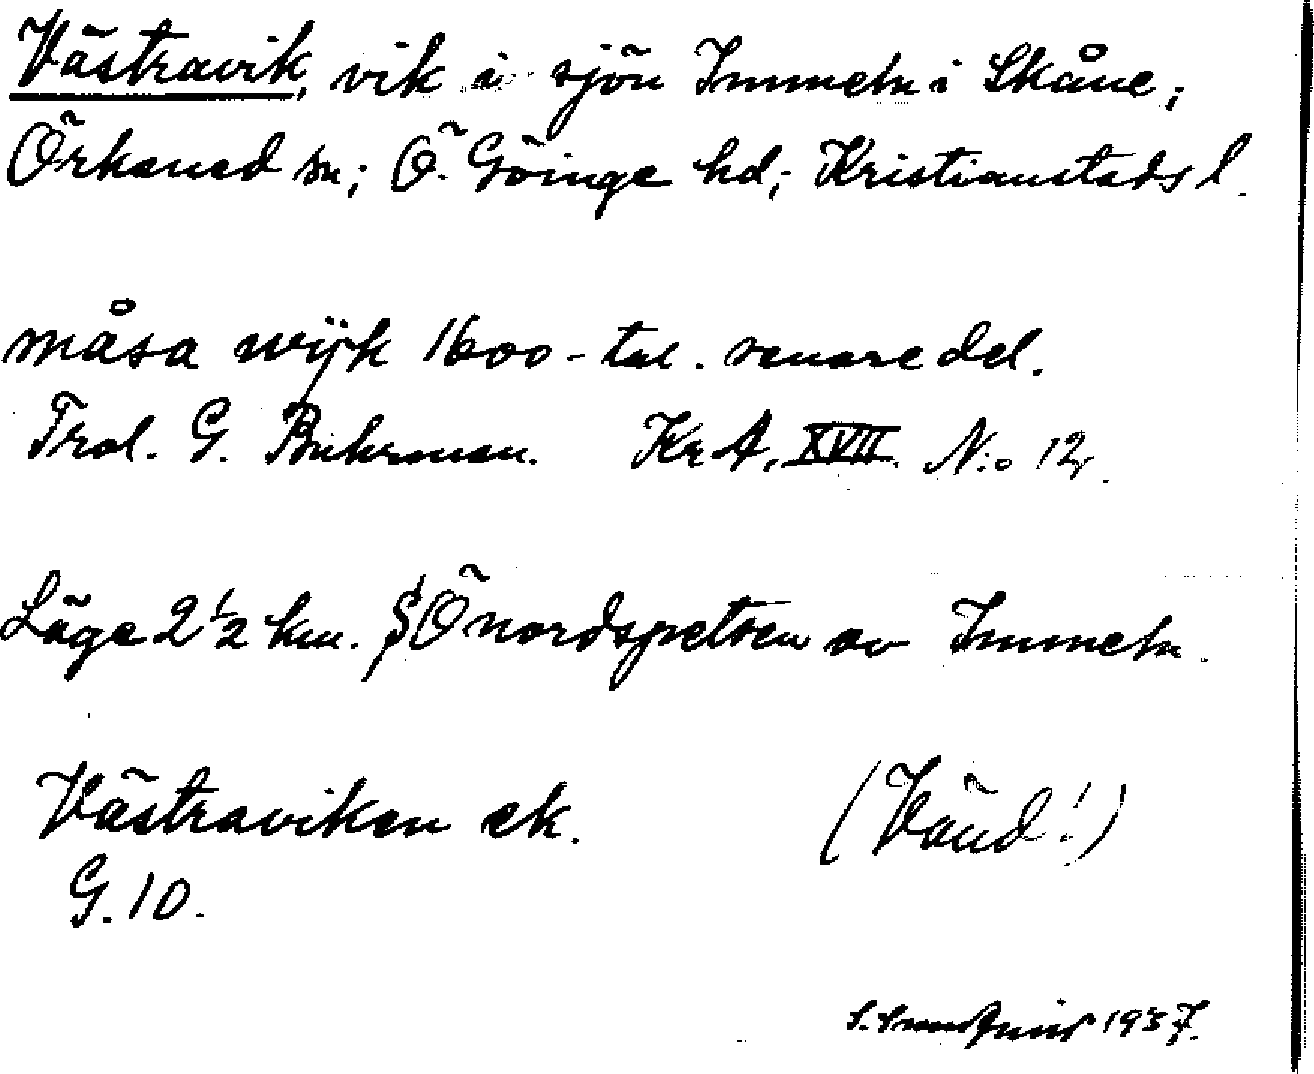 Västravik, vik i sjön Immeln i Skåne;
Örkened sn; Ö. Göinge hd; Kristianstads l.
måsa wijk 1600-tal. senare del.
Trol. G. Buhrman. KrA, XVII. N:o 12.
Läge 2 1/2 km. SÖ nordspetsen av Immeln.
Västraviken ek.
G. 10.
(Vänd!)
1937.